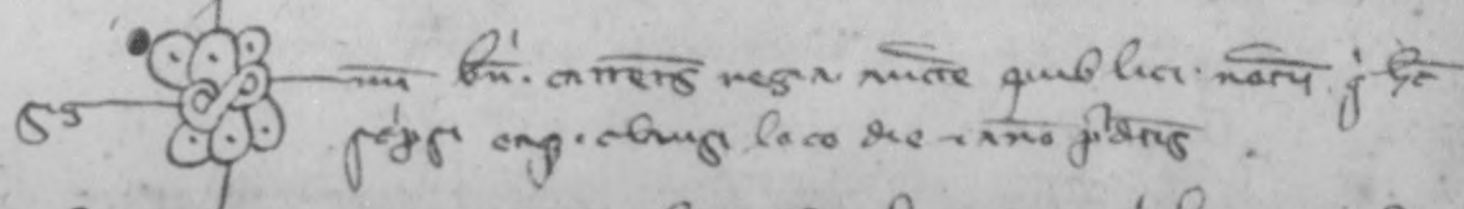 Sig nu bn. carrers regia aucte publici notarii q hec
scripsi clausi loco die anno pdctis.